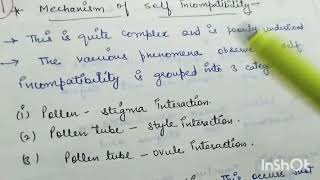 Mechanism of Self Incompatibility -
→ This is quite complex and is poorly understood
→ The various phenomena observe self
incompatibility is grouped into 3 categ
(1) Pollen - stigma Interaction.
(2) Pollen tube - style Interaction.
(3) Pollen tube - ovule Interaction.
This occurs just
InShOt